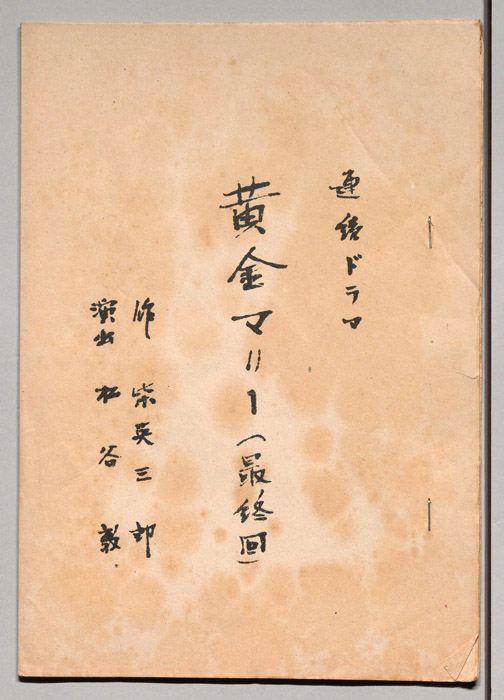 連続ドラマ
黄金マリー(最終回)
作 柴英三郎
演出 松谷 毅